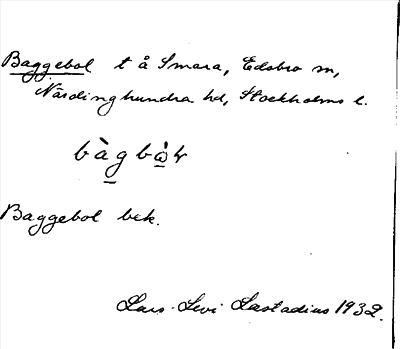 Baggebol t å Smara, Edsbro sn,
Närdinghundra hd, Stockholms l.
bàg bω̇ł
Baggebol bek.
Lars-Levi Læstadius 1932.